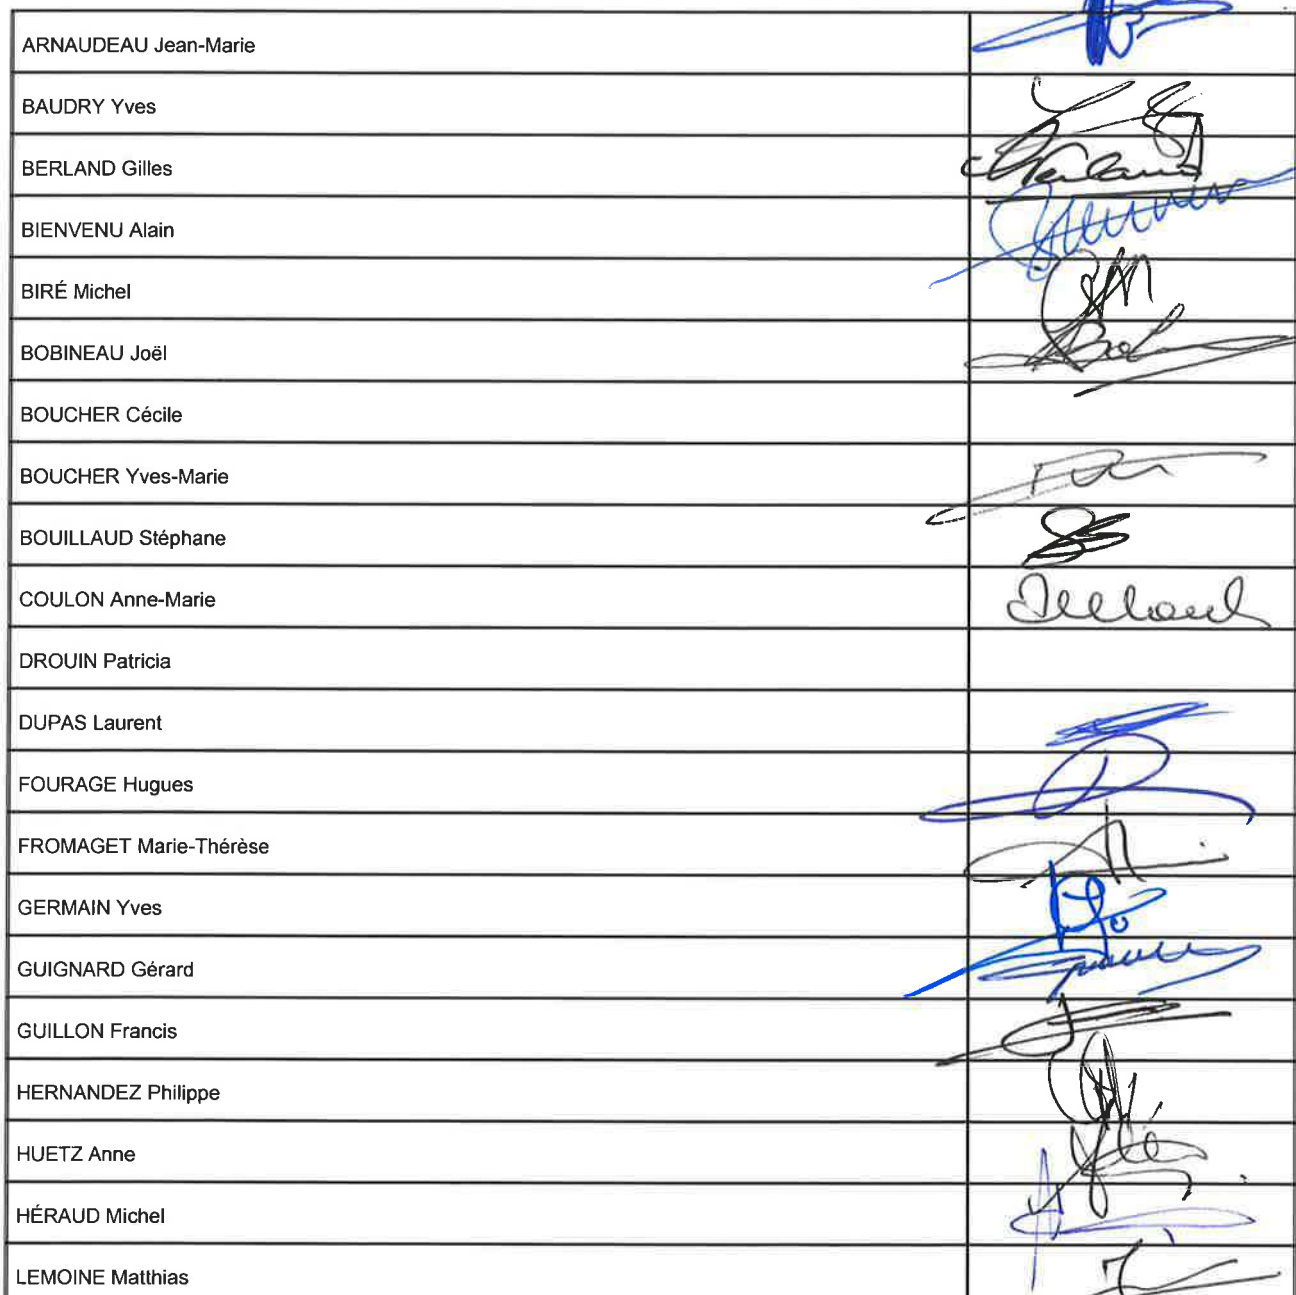 ARNAUDEAU Jean-Marie
BAUDRY Yves
BERLAND Gilles
BIENVENU Alain
BIRÉ Michel
BOBINEAU Joël
BOUCHER Cécile
BOUCHER Yves-Marie
BOUILLAUD Stéphane
COULON Anne-Marie
DROUIN Patricia
DUPAS Laurent
FOURAGE Hugues
FROMAGET Marie-Thérèse
GERMAIN Yves
GUIGNARD Gérard
GUILLON Francis
HERNANDEZ Philippe
HUETZ Anne
HÉRAUD Michel
LEMOINE Matthias